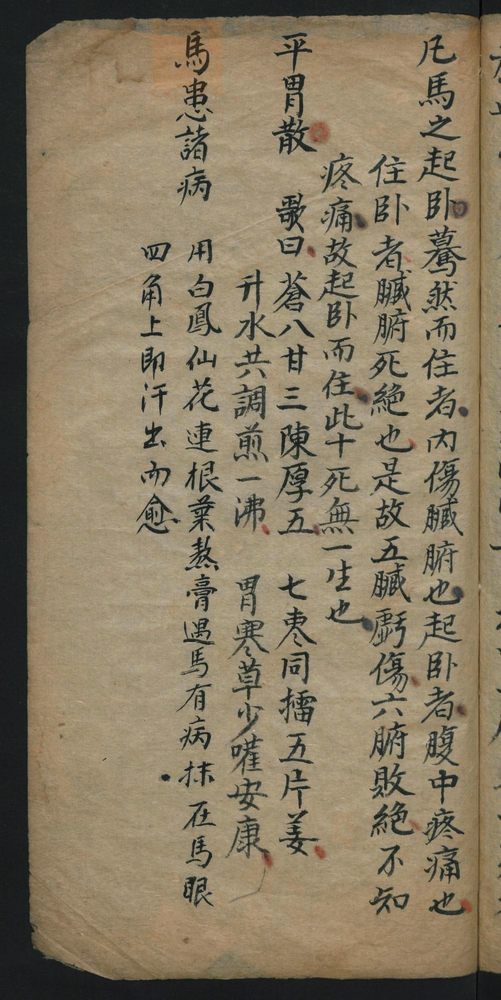 凡馬之起卧驀然而住者内傷臓腑也起卧者腹中疼痛也
住卧者臓腑死絶也是故五臓虧傷六腑敗絶不知
疼痛故起卧而住此十死無一生也
平胃散 歌曰蒼八甘三陳厚五 七枣同擂五片姜
升水共調煎一沸 胃寒草少嚾安康
馬患諸病 用白鳳仙花連根葉熬膏遇馬有病抹在馬眼
四角上即汗出而愈